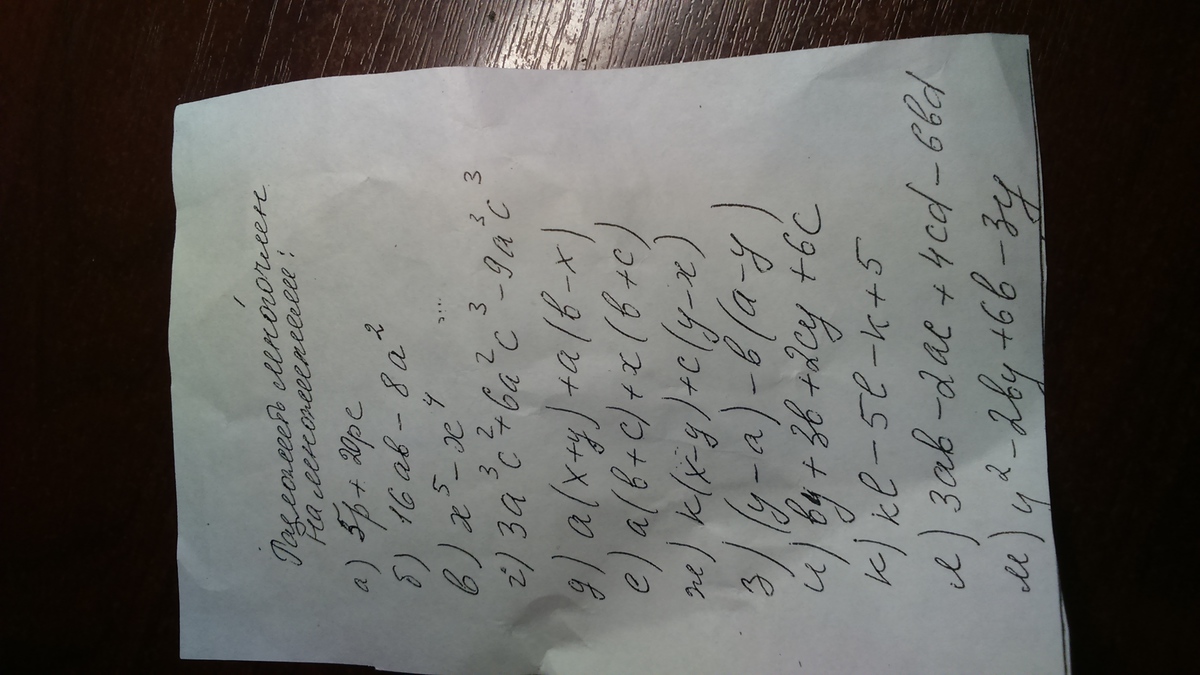 Разложить многочлен
на множители:
а) 5p + 20pc
б) 16ab - 8a²
в) x⁵ - x⁴
г) 3a³c² + 6a²c³ - 9a³c³
д) a(x+y) + a(b-x)
е) a(b+c) + x(b+c)
ж) k(x-y) + c(y-x)
з) (y-a) - b(a-y)
и) by + 3b + 2cy + 6c
к) kl - 5l - k + 5
л) 3ab - 2ac + 4cd - 6bd
м) y² - 2by + 6b - 3y